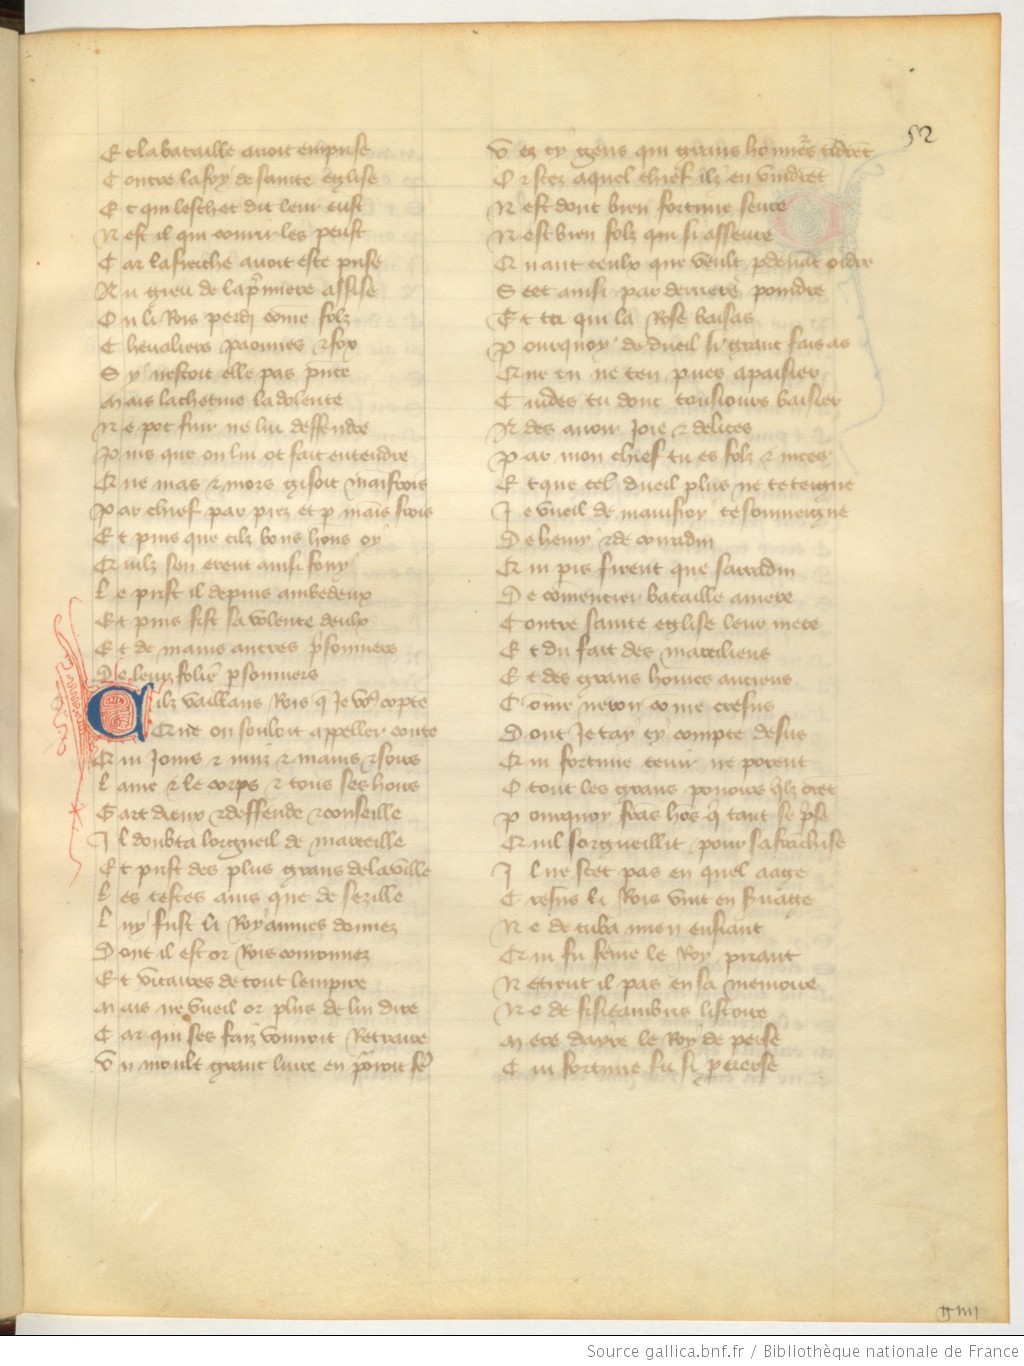 52
Et la bataille avoit emprise
Contre la foy de sainte eglise
Et qui leschec dit leur eust
N est il qui couvrir les peust
Car la fierche avoit este prise
Au gieu de la p̃miere assise
Ou li Rois perdi come folz
Chevaliers paonnes ⁊ fox
Sy nestoit elle pas p̃nte
Mais la chetive la dolente
Ne pot fuir ne lui deffendre
Puis que on lui ot fait entendre
Que mas ⁊ mors gisoit mainfrois
Par chief par piez et p mais frois
Et puis que cilz bons hons oy
Quilz sen erent ainsi fouy
Le prist il depuis ambedeux
Et puis fist sa volente deulx
Et de mains autres p̃sonniers
De leur folie p̃sonniers
Cilz vaillans Rois q̃ je vo⁹ copte
Que on souloit appeller conte
Cui jours ⁊ nuiz ⁊ mains ⁊ soirs
Lame ⁊ le corps ⁊ tous ses hoirs
Gart dieux ⁊ deffende ⁊ conseille
Il doubta lorgueil de marceille
Et prist des plus grans de la ville
Les testes ains que de sezille
Luy fust li Royaumes donnez
Dont il est or Rois couronnez
Et vicaires de tout lempire
Mais ne vueil or plus de lui dire
Car qui ses faiz vouroit Retraire
Un moult grant livre en p̃roit fe᷑
Vez cy gens qui grans honne᷑s tidrẽt
Or scez a quel chief ilz en vindrẽt
N est dont bien fortune seure
N est bien folz qui si asseure
Quant ceulx que veult p devãt oidre
Scet ainsi par derriere poindre
Et tu qui la Rose baisas
Pourquoy de dueil si grant fais as
Que tu ne ten pues apaisier
Cuides tu donc tousiours baisier
Ades avoir joie ⁊ delices
Par mon chief tu es folz ⁊ nices
Et que cel dueil plus ne te teigne
Je vueil de mainfroy te souveigne
De henry ⁊ de conradin
Qui pis firent que saradin
De comencier bataille amere
Contre sainte eglise leur mere
Et du fait des marciliens
Et des grans homes anciens
Come neron come cresus
Dont je tay cy compte desus
Qui fortune tenir ne porent
O tout les grans pouoirs q̃lz orẽt
Pourquoy frãs hõs q̃ tant se p̃se
Quil sorgueillit pour sa frãchise
Il ne scet pas en quel aage
Cresus li Rois vint en servage
Ne de cuba mien ensiant
Qui fu feme le Roy priant
Ne tient il pas en sa memoire
Ne de sisicambris listoire
Mere dayre le Roy de perse
Cui fortune fu si perverse